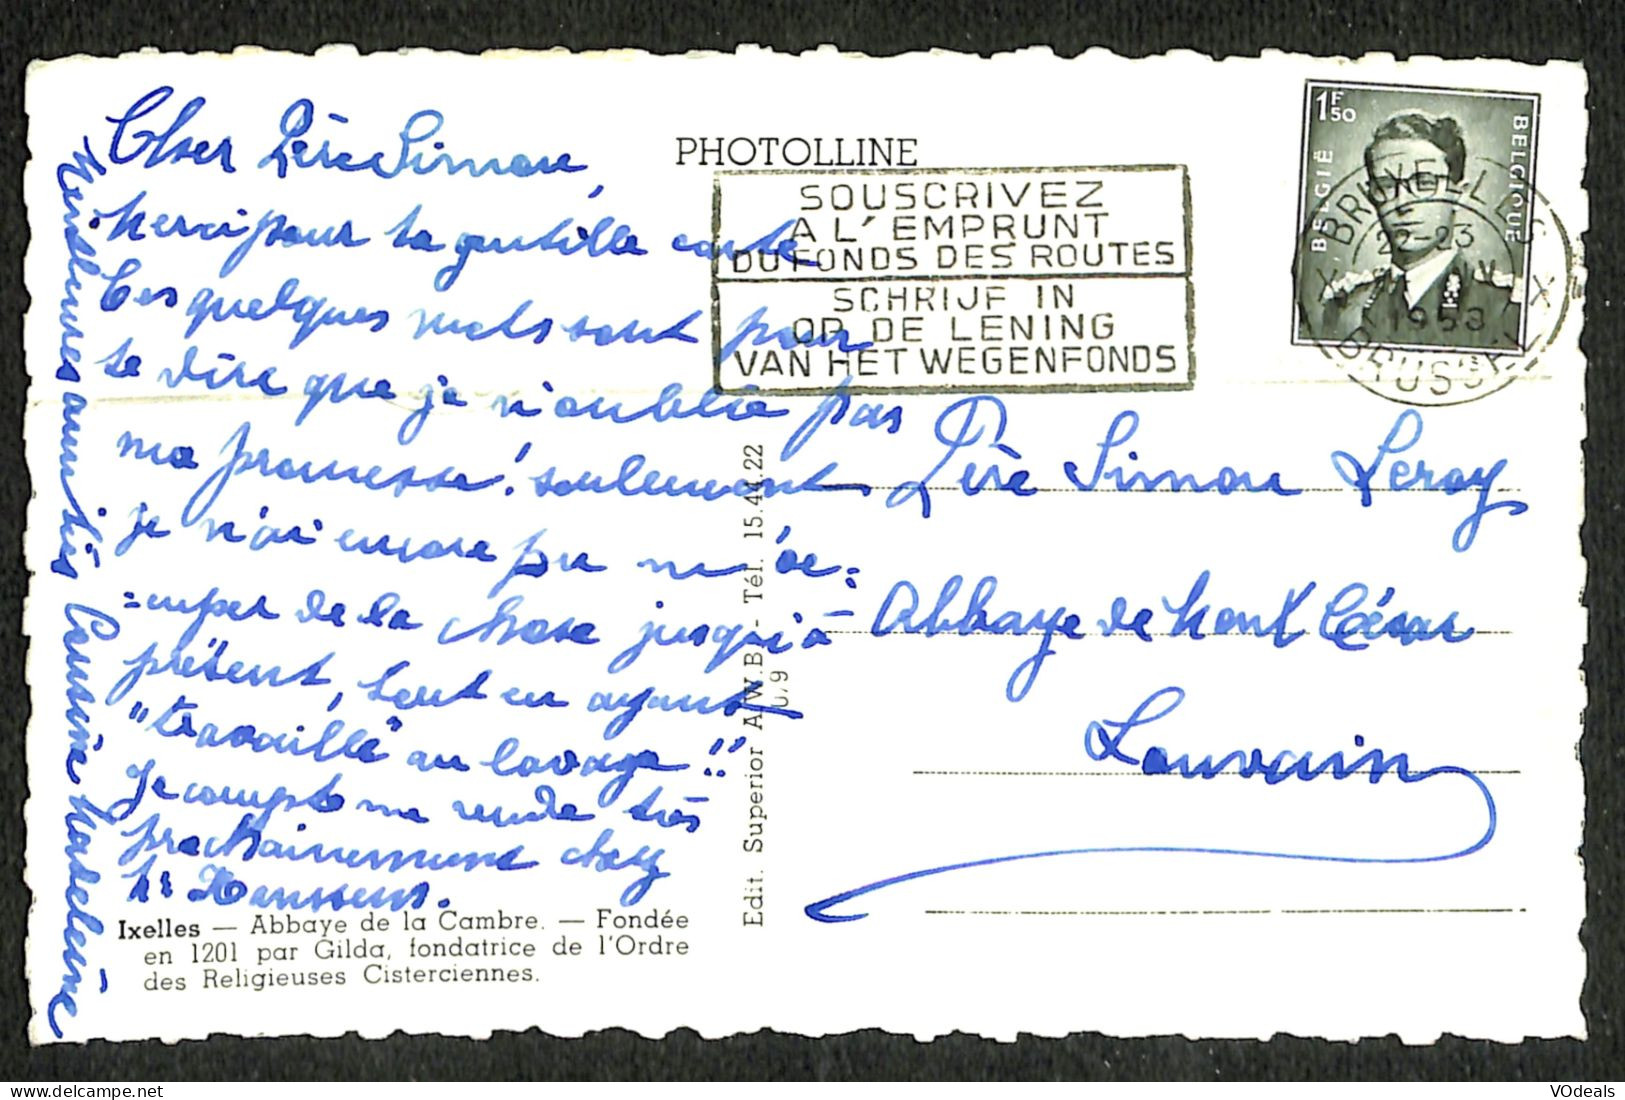 Cher Père Simon,
Merci pour ta gentille carte
Ces quelques mots sont pour
te dire que je n'oublie pas
ma promesse! seulement
je n'ai encore pu m'oc=
=cuper de la chose jusqu'à
présent, tout en ayant
"travaillé" au lavage!!
Je compte me rendre très
prochainement chez
Mr Janssens.
Meilleures amitiés Cousine Madeleine
PHOTOLLINE
SOUSCRIVEZ
A L'EMPRUNT
DU FONDS DES ROUTES
SCHRIJF IN
OP DE LENING
VAN HET WEGENFONDS
1F50
BELGIË
BELGIQUE
BRUXELLES
22-23
1953
BRUSSEL
X X
Père Simon Leroy
Abbaye de Mont César
Louvain
Edit. Superior A.W.B. - Tél. 15.44.22
Ixelles — Abbaye de la Cambre. — Fondée
en 1201 par Gilda, fondatrice de l'Ordre
des Religieuses Cisterciennes.
VOdeals